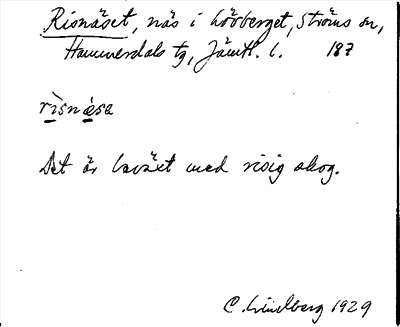 Risnäset, näs i Lövberget, Ströms sn,
Hammerdals tg, Jämtl. l. 187
rìsnǻsa
Det är beväxt med risig skog.
C. Lindberg 1929